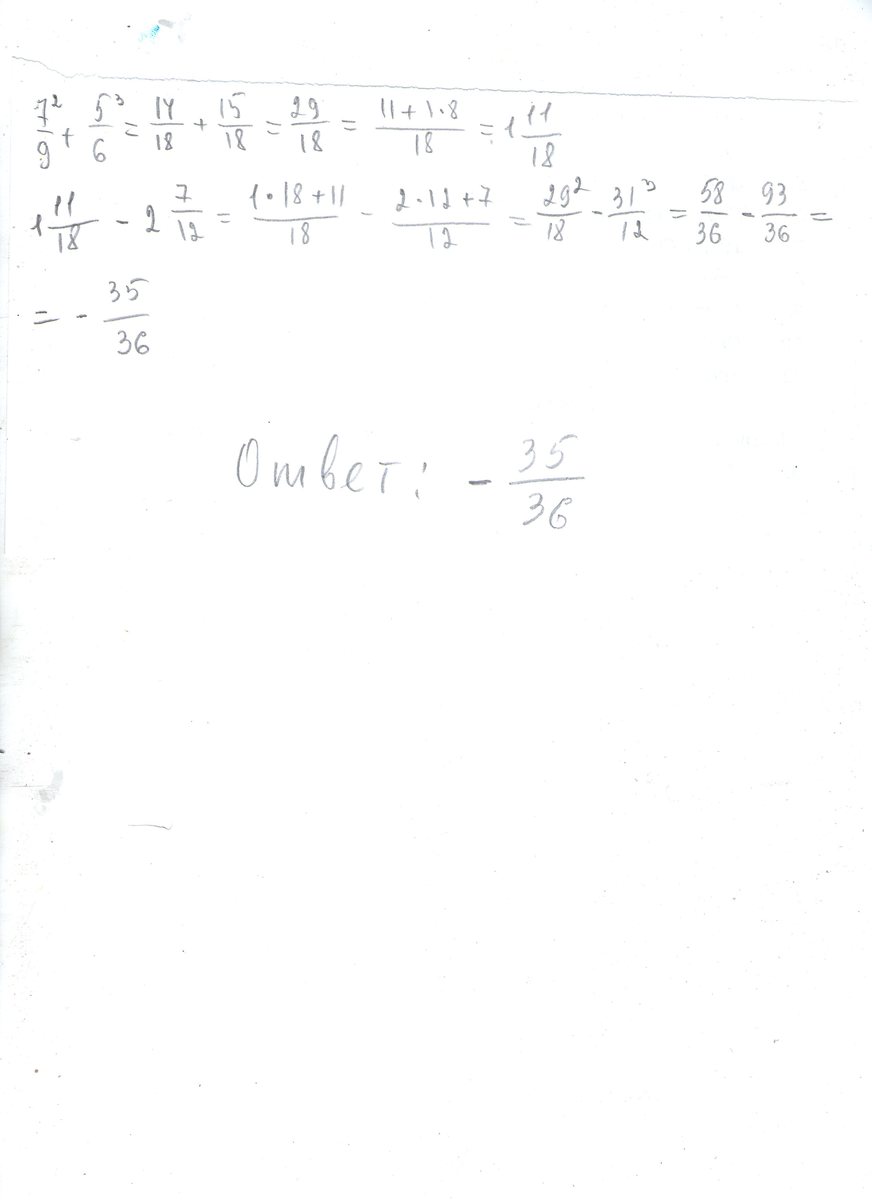 7²/9 + 5³/6 = 14/18 + 15/18 = 29/18 = 11+1·8/18 = 1 11/18
1 11/18 - 2 7/12 = 1·18+11/18 - 2·12+7/12 = 29²/18 - 31³/12 = 58/36 - 93/36 =
= - 35/36
Ответ: - 35/36